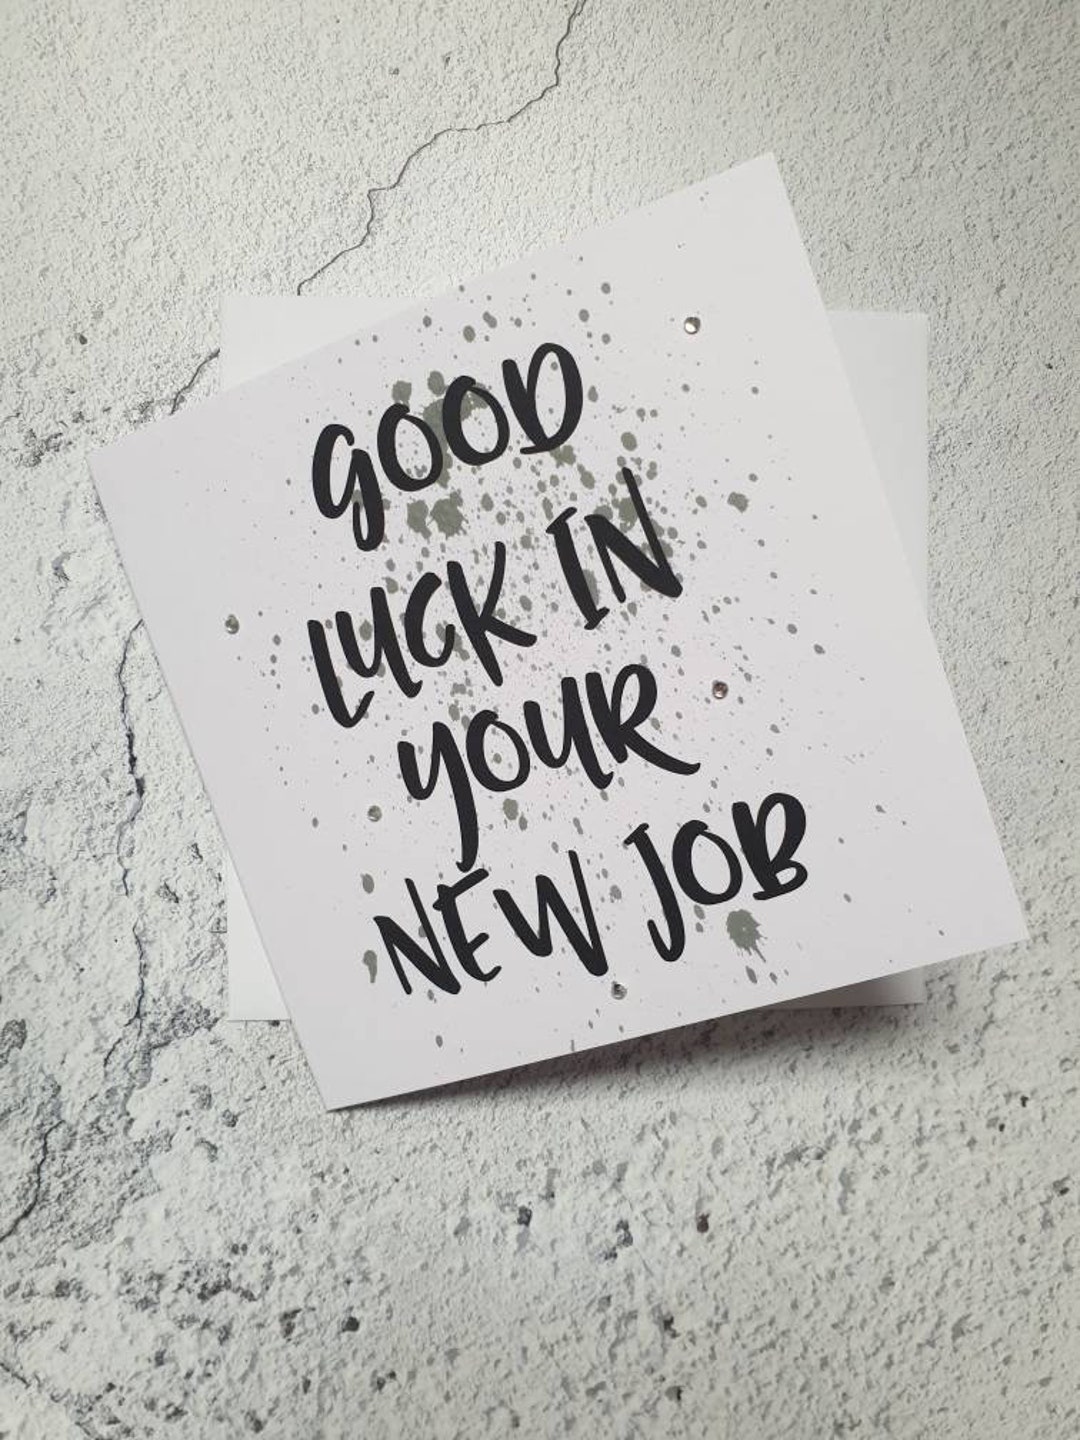 GOOD
LUCK IN
YOUR
NEW JOB